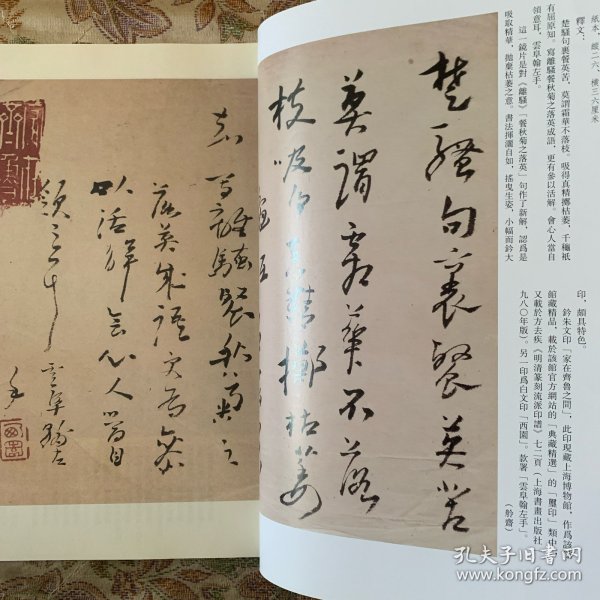 紙本、縱二六、橫三六厘米
釋文：
楚騷句裏餐英苦，莫謂霜華不落枝。吸得真精擲枯萎，千穐祇
有屈原知。寫離騷餐秋菊之落英成語，更有參以活解，會心人當自
領意耳，雲阜翰左手。
這一鏡片是對《離騷》「餐秋菊之落英」句作了新解，認爲是
吸取精華，拋棄枯萎之意。書法揮灑自如，搖曳生姿，小幅而鈐大
印，頗具特色。
鈐朱文印「家在齊魯之間」，此印現藏上海博物館，作爲該
館藏精品，載於該館官方網站的「典藏精選」的「璽印」類中
又載於方去疾《明清篆刻流派印譜》七二頁（上海書畫出版社
九八〇年版）。另一印爲白文印「西園」。款署「雲阜翰左手」。
（舲齋）
楚騷句裏餐英苦
莫謂霜華不落
枝吸得真精擲枯萎
知
寫離騷餐秋菊之
落英成語更有參
以活解會心人當自
領意耳
雲阜翰左
手
孔夫子旧书网
www.kongfz.com